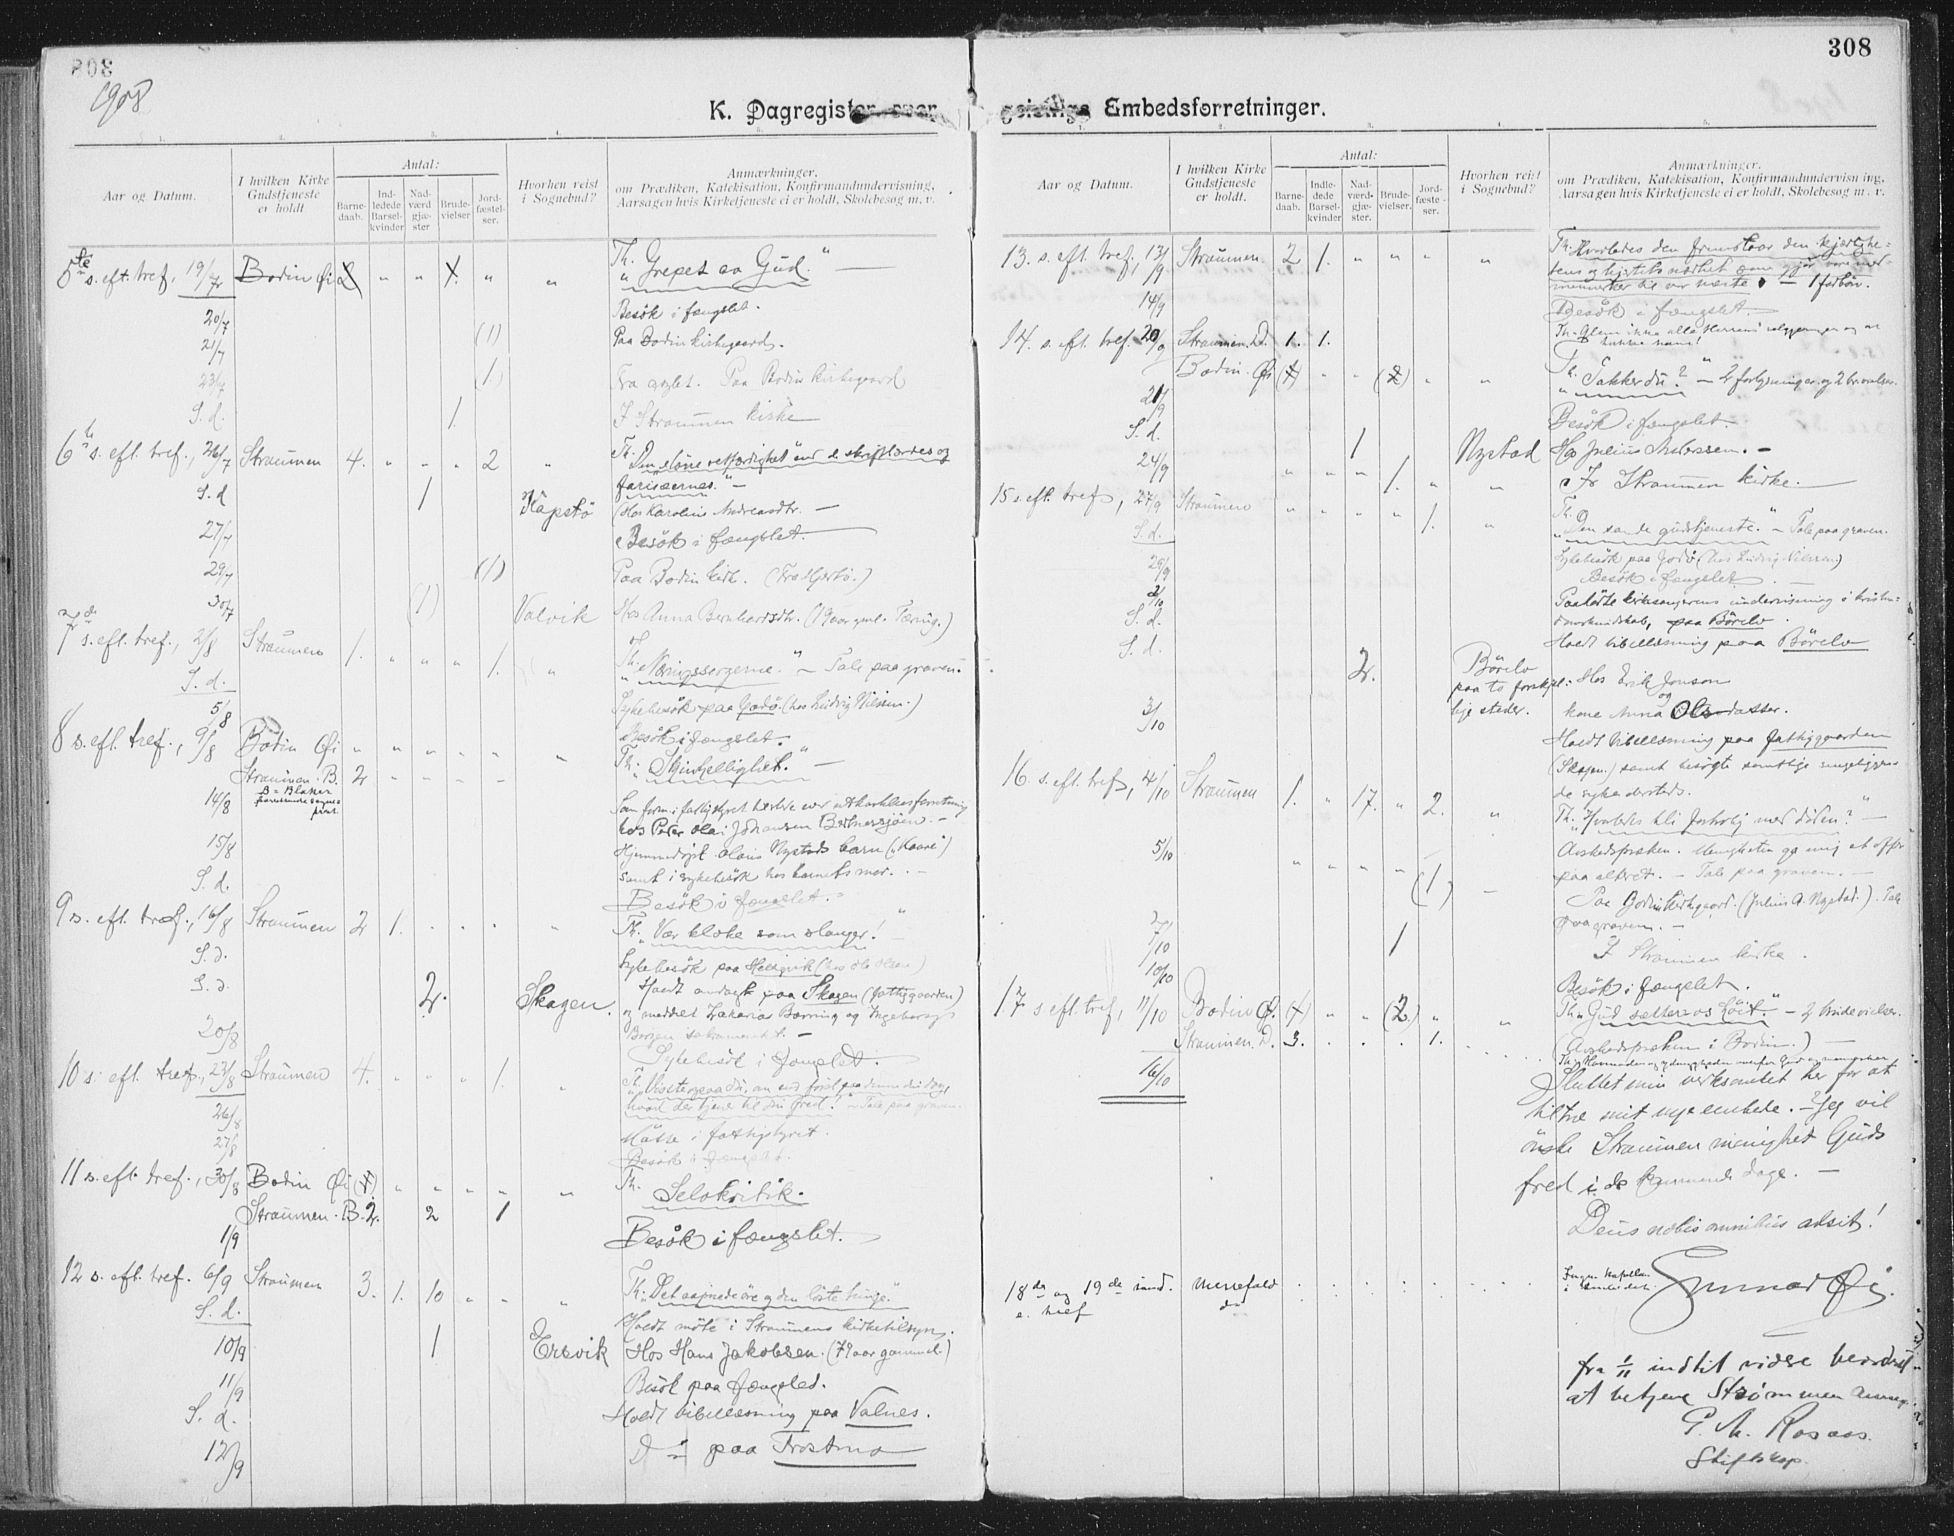 308
1908
K. Dagregister over
Aar og Datum.
I hvilken Kirke Gudstjeneste er holdt
Antal:
Barne-daab.
Ind-ledede Barsel-kvinder
Nad-værd gjæ-ster
Brude-vielser
Jord-fæstel-ser.
Hvorhen reist i Sognebud?
Anmærkninger,
om Prædiken, Katekisation, Konfirmandundervisning,
Aarsagen hvis Kirketjeneste ei er holdt, Skolebesøg m. v.
5te s. eft. tref, 19/7 Bodin Øi 2 " " 1. " " Th. "Grepet av Gud."
20/7 Besök i fængslet.
21/7 (1) Paa Bodin kirkegaard.
23/7 (1.) Fra asylet. Paa Bodin kirkegaard
S. d. 1. I Straumen kirke
6te s. eft. tref., 26/7 Straumen 4. " " " 2 " Th. "Den större retfærdighet end de skriftlærdes og
farisæernes." –
S. d 1 Kapstö Hos Karolin Andreasdtr. –
27/7 Besök i fængslet.
29/7 (1) Paa Bodin kirk. (Fra Hjertö.)
30/7 (1) Valvik Hos Anna Bernhardsdtr. (19 aar gml. Tæring.)
7de s. eft. tref., 2/8 Straumen 1. " " " 1. " Th. "Næringssorgerne." – Tale paa graven.
S. d. Sykebesök paa Godö. (hos Ludvig Nilssen.)
5/8 Besök i fængslet.
8 s. eft. tref., 9/8 Bodin Øi " " " " " " Th. "Skinhellighet." –
Straumen. B. 2 - - - -
B = Blakar
14/8
hos Peter Olai Johansen Bertnessjöen. –
15/8 Hjemmedöpt Olaus Nystads barn ("Kaare")
samt i sykebesök hos barnets mor. –
S. d. Besök i fængslet.
9 s. eft. tref., 16/8 Straumen 2 1. . . . " Th. "Vær kloke som slanger!"
S. d. Sykebesök paa (hos Ole Olsen)
S. d 2. Skagen. Holdt andagt paa Skagen (fattiggaarden)
og meddelt Zakarias og Ingeborg
sakramentet. –
20/8 Sykebesök i fængslet.
10 s. eft. tref., 23/8 Straumen 4. " " " 1. " Th. "Visste ogsaa du, om end först paa denne din dag,
hvad der tjener til din fred!" – Tale paa graven.
26/8 Möte i fattigstyret.
27/8 Besök i fængslet.
11 s. eft. tref., 30/8 Bodin Øi (1) " " " " " Th.
Selvkritik.
Straumen. B. 2. 2 1
1/9 Besök i fængslet.
12 s. eft. tref. 6/9 Straumen 3. 1. 10 " " " Th. "Det aapnede öre og den löste tunge."
S. d. Holdt möte i Straumens kirketilsyn.
10/9 1 Ersvik Hos Hans Jakobsen. (79 aar gammel.)
11/9 Besök paa fængslet.
S. d. Holdt bibellæsning paa Valnes.
12/9 D " paa Trostmo
308
geistlige Embedsforretninger.
Aar og Datum.
I hvilken Kirke Gudstjeneste er holdt.
Antal:
Barne-daab.
Indle-dede Barsel-kvinder
Nad-værd-gjæ-ster.
Brude-vielser.
Jord-fæste-ser.
Hvorhen reist i Sognebud?
Anmærkninger.
om Prædiken, Katekisation, Konfirmandundervisning,
Aarsagen hvis Kirketjeneste ei er holdt, Skolebesøg m. v.
13. s. eft. tref., 13/9 Straumen 2 1. " " " " Th. Hvorledes den fremstaar den kjærlighe-
tens og hjertets nærhet som gjör vore med-
mennesker til vor næste. – 1 forbön.
14/9 Besök i fængslet.
14. s. eft. tref. 20/9 Straumen. D. 1. 1. Th. Glem ikke alle Herrens velgjerninger og
Bodin. Øi (1) " " (2) " " Th. "Takker du?" – 2 forlysninger og 2 brudvielser.
21/9 Besök i fængslet. –
S. d. 1 Nystad Hos Julius Andersen. –
24/9 " " " 1. " " I Straumen kirke. –
15 s. eft. tref, 27/9 Straumen " " " " 1. " Th. "Den sande gudstjeneste." – Tale paa graven.
S. d. Sykebesök paa Godö (hos Ludvig Nilssen)
29/9 Besök i fængslet.
2/10 Paahörte kirkesangerens undervisning i kristen-
domskundskab, paa Börelv.
S. d. Holdt bibellæsning paa Börelv
S. d. 2. Börelv paa to forskjel-lige steder. Hos Erik Jonson
og
kone Anna Olsdatter.
3/10 Holdt bibellæsning paa fattiggaarden
(Skagen.) samt besögte samtlige sengeliggen-
de syke dersteds.
16. s. eft. tref, 4/10 Straumen 1. " 17. " 2. " Th. "Hvorledes bli fortrolig med döden?" –
Avskedspræken. Menigheten ga mig et offer
paa alteret. – Tale paa graven. –
5/10 " " " " (1) – Paa Bodin kirkegaard. (Julius A. Nystad.). Tale
paa graven. –
7/10 1 I Straumen kirke.
10/10 Besök i fængslet.
17 s eft. tref, 11/10 Bodin Ø. (1) " " (2.) " " Th. "Gud sætter os höit." – 2 brudevielser.
Straumen. D. 3. . . . 1. (Avskedspræken i Bodin.) –
16/10 Sluttet min verksomhet her for at
tiltræ mit nye embede. – Jeg vil
önske Straumen menighet Guds
fred i de kommende dage. –
Deus nobis omnibus adsit!
Gunnar Øi.
18de og 19de sönd. e. tref messefald
fra 1/11 indtil videre beordret
at betjene Strömmen
P. A. Rosaas.
Stiftskap.